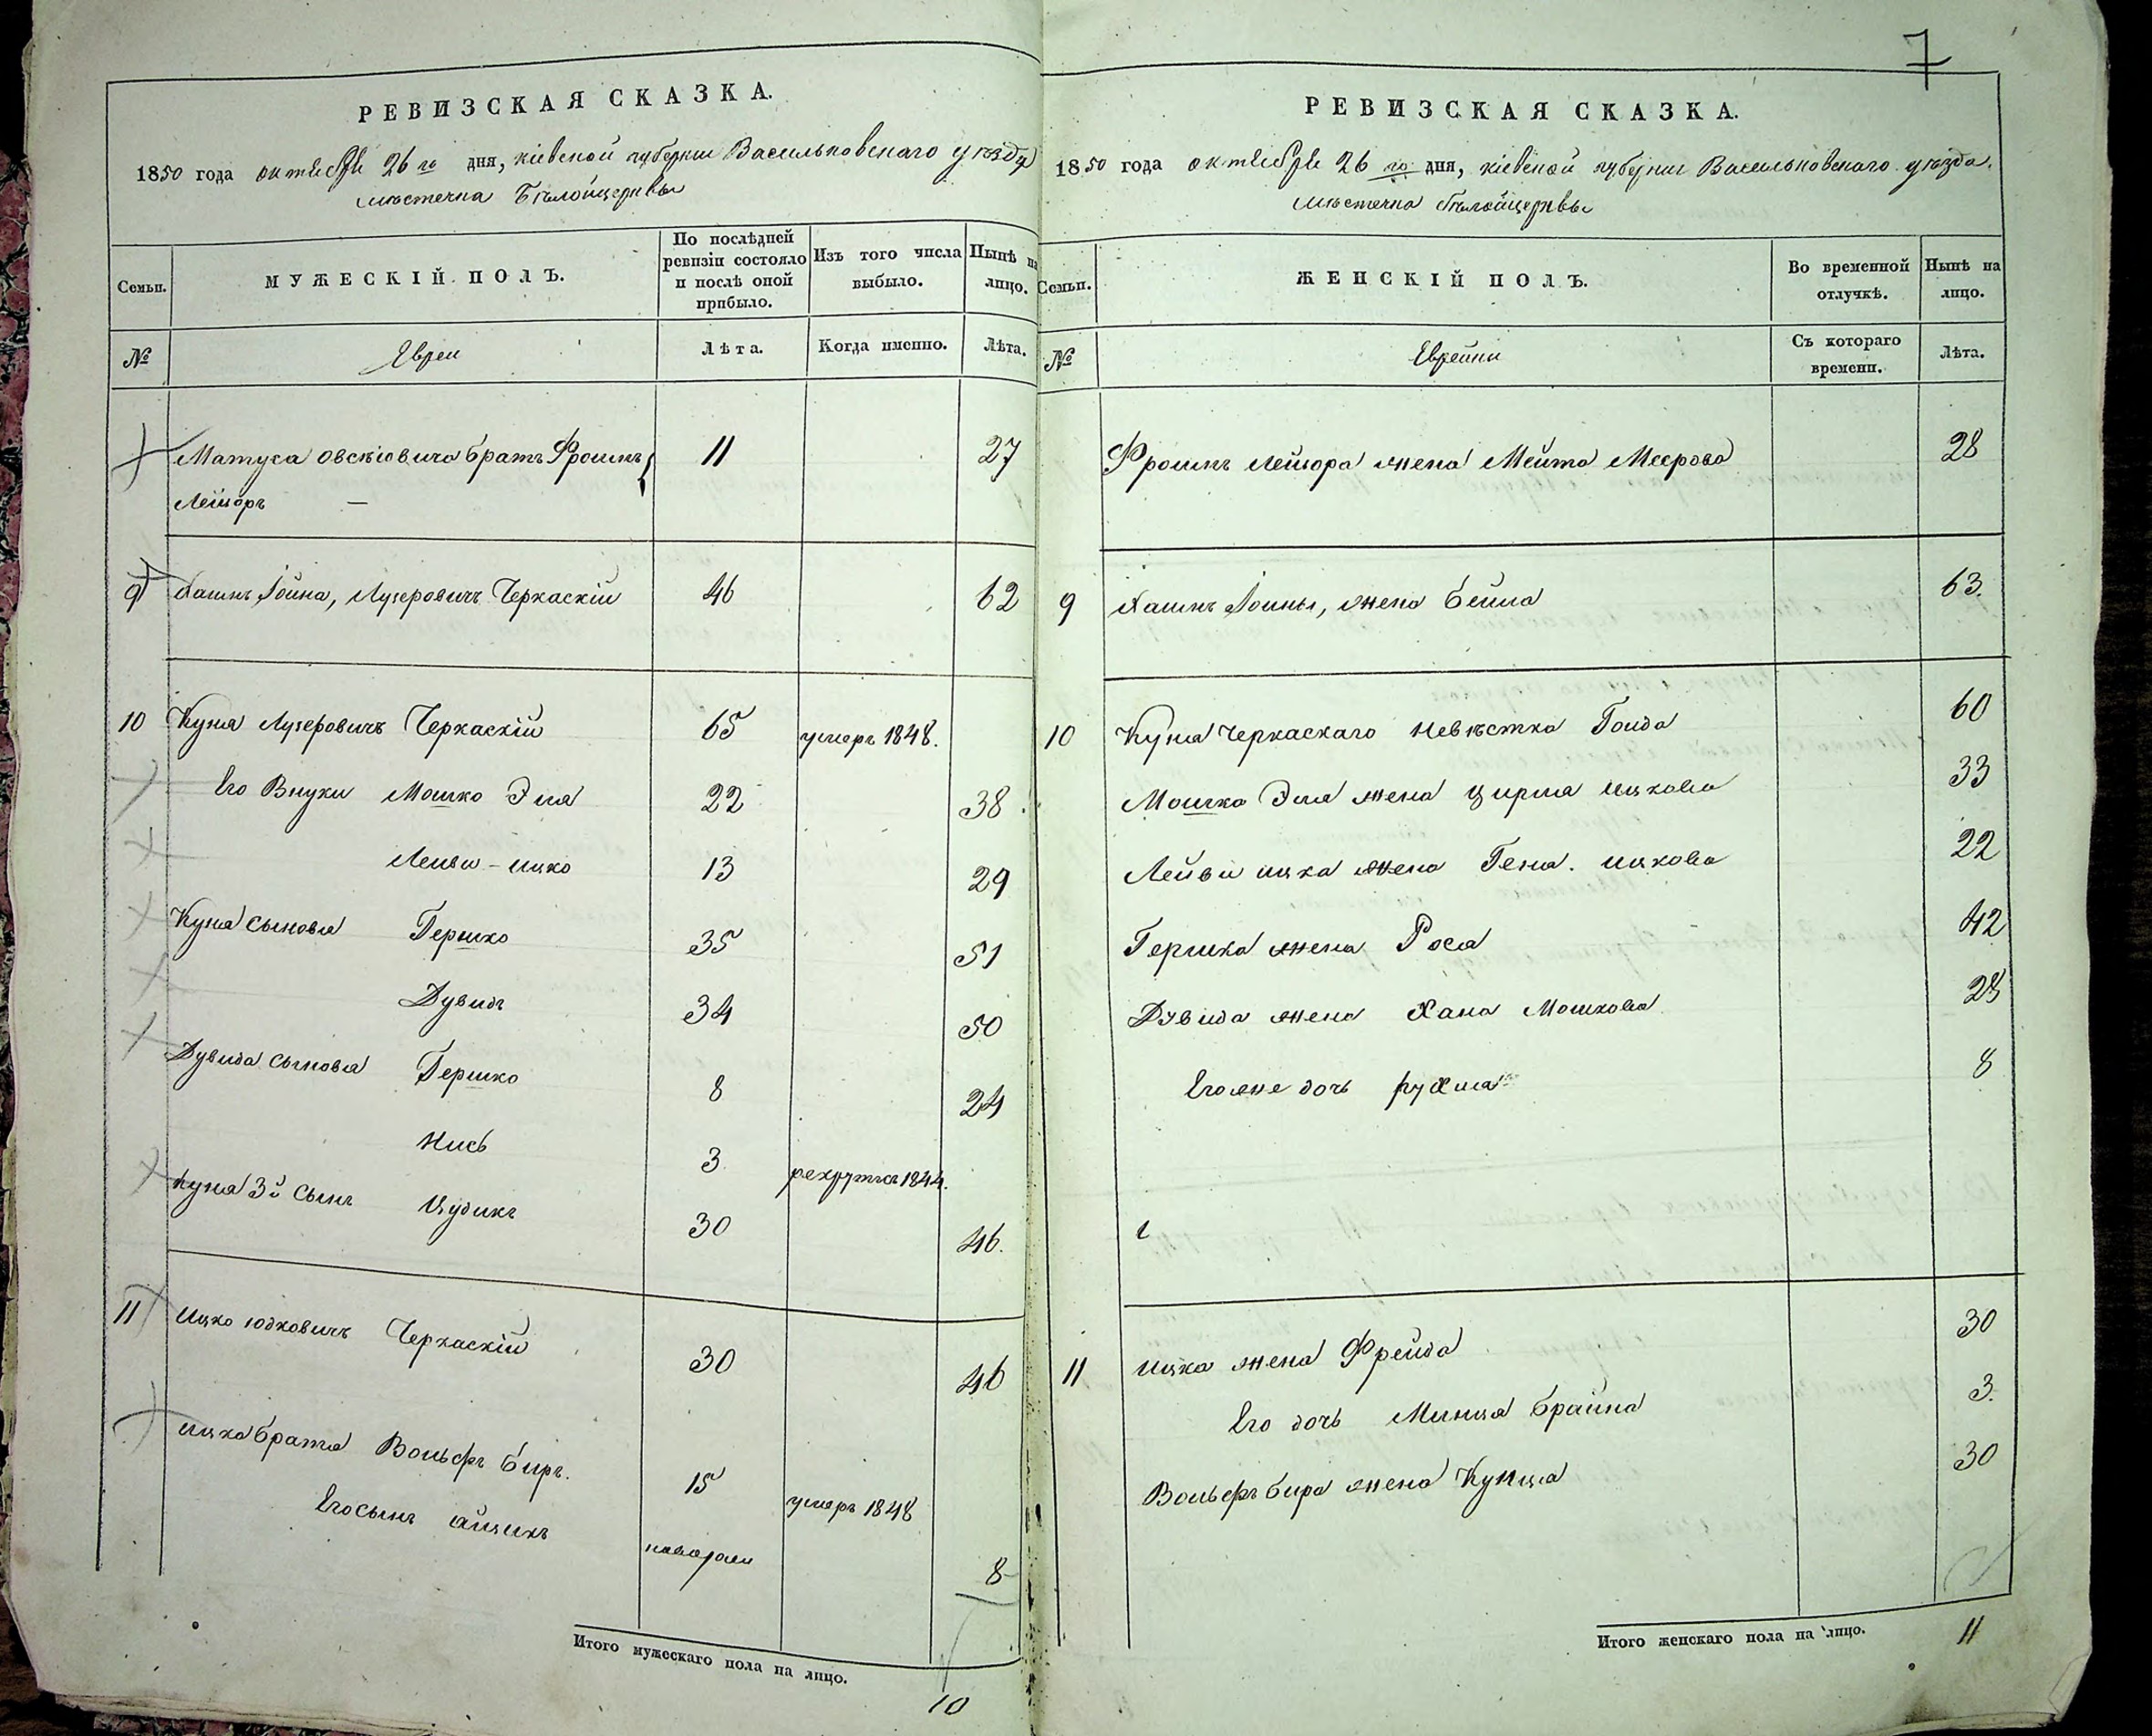 РЕВИЗСКАЯ СКАЗКА.
1850 года октября 26 го дня, Кіевской губерніи Васильковскаго уѣзда
мѣстечка Бѣлойцеркви
Семьи. МУЖЕСКІЙ ПОЛЪ. По послѣдней ревизіи состояло и послѣ оной прибыло. Изъ того числа выбыло. Нынѣ на лицо.
№ Евреи Лѣта. Когда именно. Лѣта.
Матуса Овсѣовича братъ Фроимъ 11 27
Лейзоръ —
9 Хаимъ Іойна, Лузеровичъ Черкаскій 46 62
10 Куна Лузеровичъ Черкаскій 65 умеръ 1848.
Его Внуки Мошко Эля 22 38
Лейви-Ицко 13 29
Куна сыновья Гершко 35 51
Дувидъ 34 50
Дувида сыновья Гершко 8 24
Нись 3 рекрутъ съ 1844.
Куна 3й сынъ Цудикъ 30 46.
11 Ицко Юдковичъ Черкаскій 30 46
Ицка братья Вольфъ Беръ. 15 умеръ 1848
Его сынъ Айзикъ 8
Итого мужескаго пола на лицо. 10
7
РЕВИЗСКАЯ СКАЗКА.
1850 года октября 26 го дня, Кіевской губерніи Васильковскаго уѣзда.
мѣстечка Бѣлойцеркви
Семьи. ЖЕНСКІЙ ПОЛЪ. Во временной отлучкѣ. Нынѣ на лицо.
№ Еврейки Съ котораго времени. Лѣта.
Фроимъ Лейзора жена Мейта Меерова 28
9 Хаимъ Іоины, жена Бейла 63.
10 Куна Черкаскаго невѣстка Голда 60
Мошка Эля жена Цирля Ицкова 33
Лейви Ицка жена Гена. Ицкова 22
Гершка жена Рося 42
Дувида жена Хана Мошкова 28
Его же дочь Рухля 8
11 Ицка жена Фрейда 30
Его дочь Минця Брайна 3.
Вольфъ Бера жена Кунца 30
Итого женскаго пола на лицо. 11